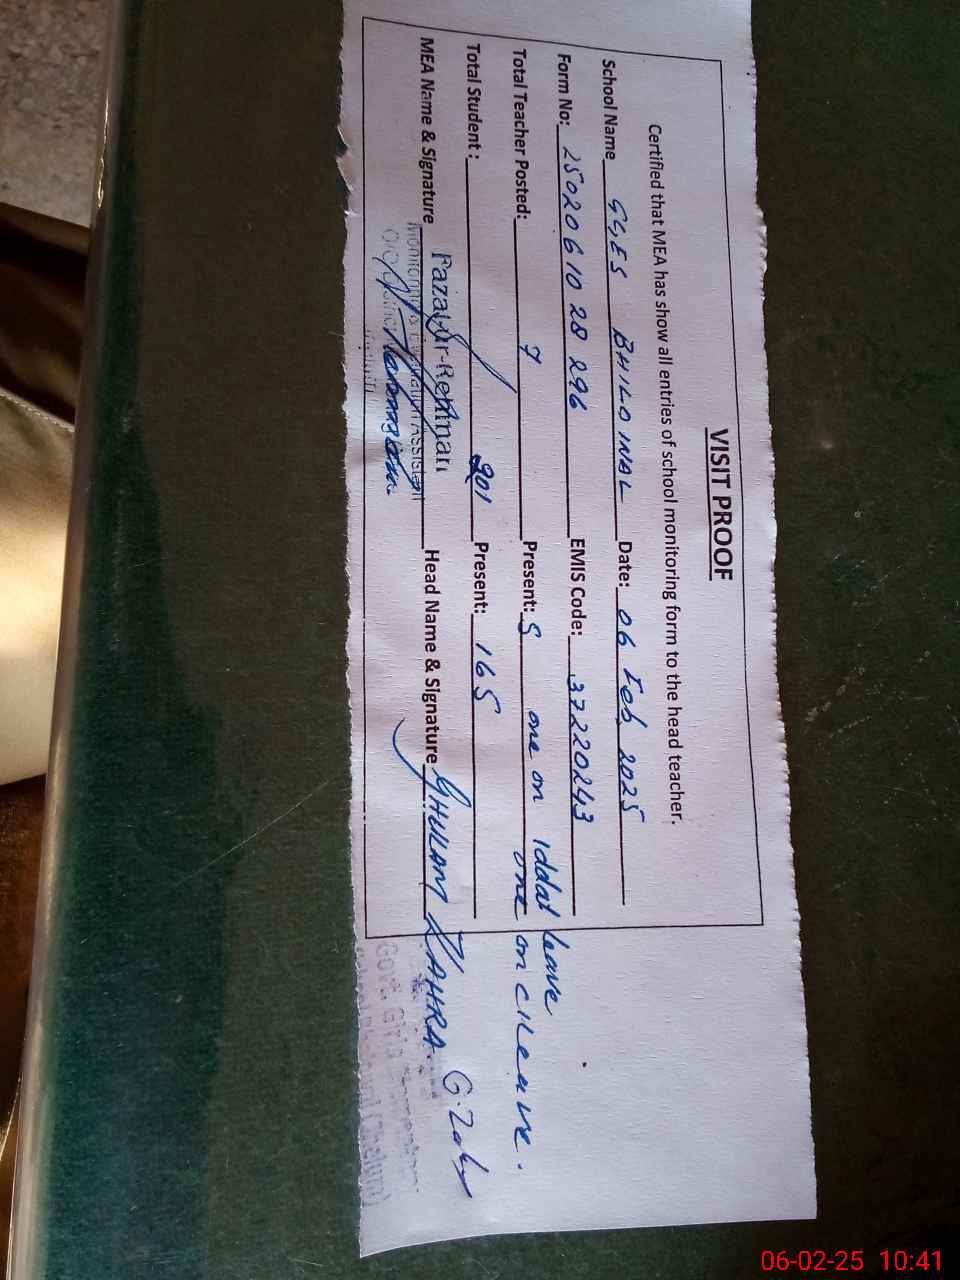 VISIT PROOF
Certified that MEA has show all entries of school monitoring form to the head teacher.
School Name GGES BHILO MAL Date: 06 Feb 2025
Form No: 2502061028296 EMIS Code: 37220243
Total Teacher Posted: 7 Present: 5 one on Iddat leave
one on C/Leave.
Total Student: 201 Present: 165
MEA Name & Signature Fazal-ur-Rehman Head Name & Signature GHULAM ZAHRA
Monitoring Assistant
Govt. Girls
(Jhelum)
06-02-25 10:41